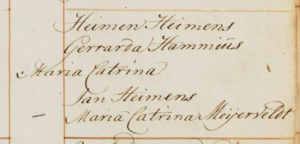 Heimen Heimens
Gerrarda Hammius
Maria Catrina
Jan Heimens
Maria Catrina Meijerveldt